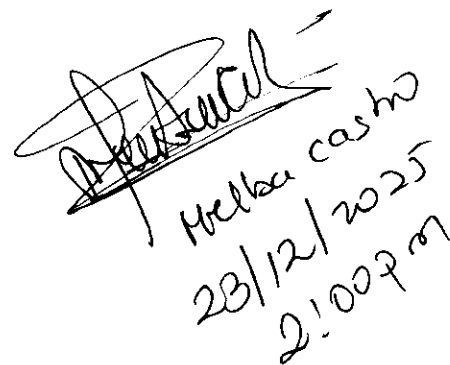 Melba Castro
23/12/2025
2:00pm